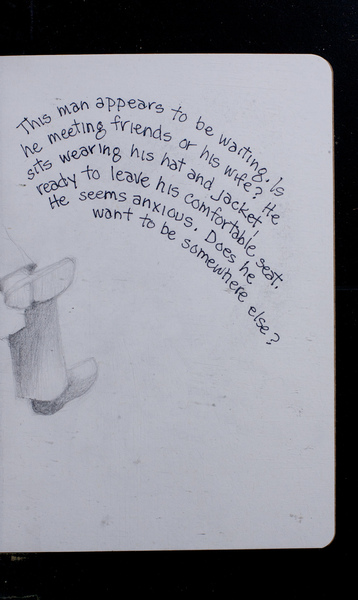 This man appears to be waiting. Is
he meeting friends or his wife? He
sits wearing his hat and jacket,
ready to leave his comfortable seat.
He seems anxious. Does he
want to be somewhere else?